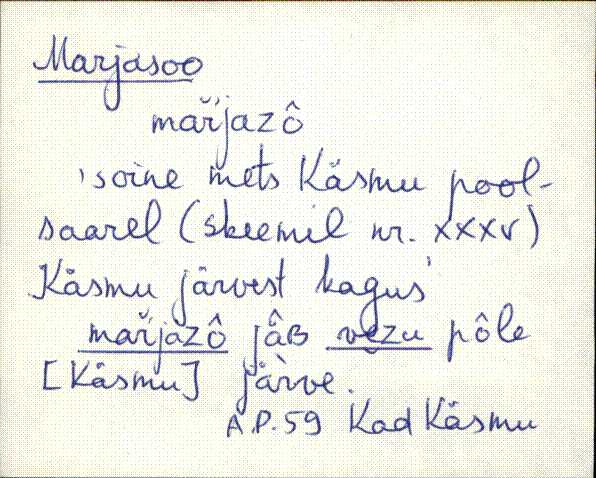 Marjasoo
mar̆jazô
'soine mets Käsmu pool-
saarel (skeemil nr. XXXV)
Käsmu järvest kagus'
mar̆jazô jäB vezu pôle
[Käsmu] järve.
A.P. 59 Kad Käsmu